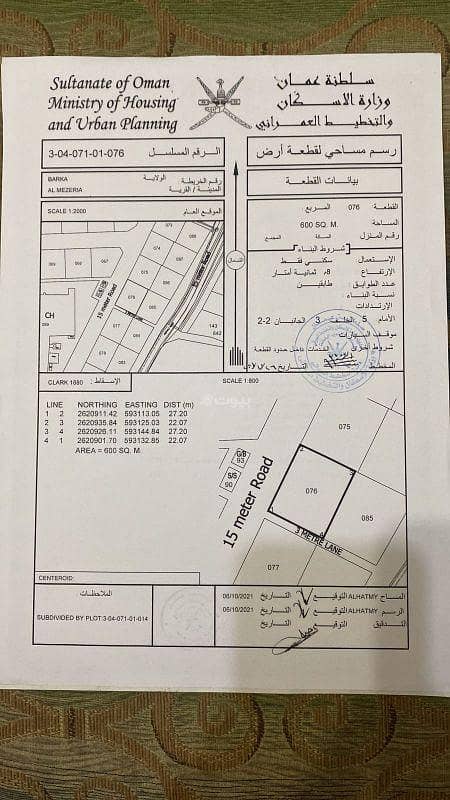 Sultanate of Oman
Ministry of Housing
and Urban Planning
سلطنة عمان
وزارة الاسكان
والتخطيط العمراني
3-04-071-01-076
الرقم المسلسل
رسم مساحي لقطعة أرض
BARKA
الولاية
رقم الخريطة
AL MEZERIA
المدينة / القرية
بيانات القطعة
SCALE 1:2000
الموقع العام
القطعة 076 المربع
المساحة 600 SQ. M.
رقم المنزل السكة المجمع
شروط البناء
الإستعمال سكني فقط
الإرتفاع 8م ثمانية أمتار
عدد الطوابق طابقين
نسبة البناء
الإرتدادات
الأمام 5 الخلف 3 الجانبان 2-2
موقف السيارات
شروط أخرى الخدمات داخل حدود القطعة
المخطط
التاريخ
الشمال
073
15 meter Road
15 meter Road
CH
143
642
CLARK 1880
الإسقاط:
SCALE 1:800
LINE NORTHING EASTING DIST (m)
1 2 2620911.42 593113.05 27.20
2 3 2620935.84 593125.03 22.07
3 4 2620926.11 593144.84 27.20
4 1 2620901.70 593132.85 22.07
AREA = 600 SQ. M.
بيوت
075
G/B
93
S/S
90
15 meter Road
2
3
076
1
085
3 METRE LANE
077
CENTEROID:
الملاحظات
SUBDIVIDED BY PLOT:3-04-071-01-014
المساح ALHATMY التوقيع التاريخ 06/10/2021
الرسم ALHATMY التوقيع التاريخ 06/10/2021
التدقيق التوقيع التاريخ